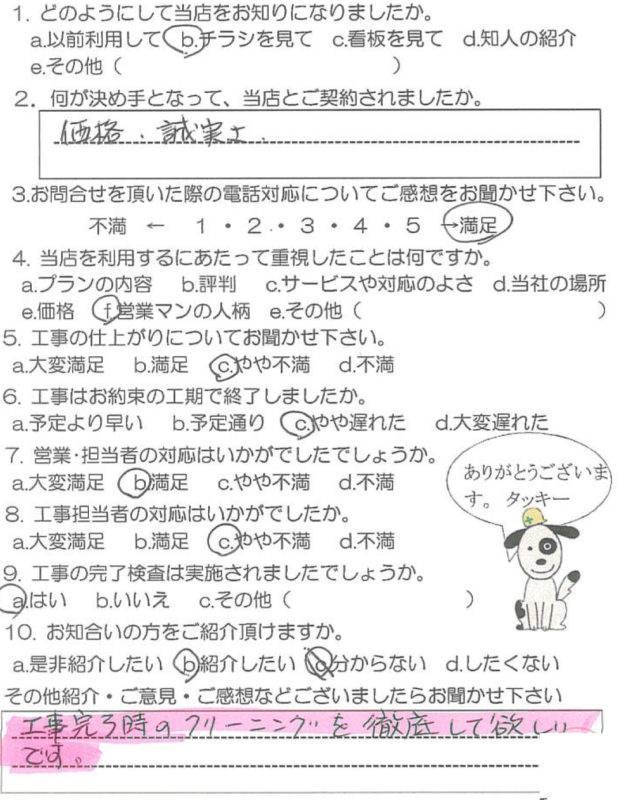 1. どのようにして当店をお知りになりましたか。
a.以前利用して b.チラシを見て c.看板を見て d.知人の紹介
e.その他（ ）
2. 何が決め手となって、当店とご契約されましたか。
価格、誠実さ、
3.お問合せを頂いた際の電話対応についてご感想をお聞かせ下さい。
不満 ← 1・2・3・4・5 →満足
4. 当店を利用するにあたって重視したことは何ですか。
a.プランの内容 b.評判 c.サービスや対応のよさ d.当社の場所
e.価格 f.営業マンの人柄 e.その他（ ）
5. 工事の仕上がりについてお聞かせ下さい。
a.大変満足 b.満足 c.やや不満 d.不満
6. 工事はお約束の工期で終了しましたか。
a.予定より早い b.予定通り c.やや遅れた d.大変遅れた
7. 営業・担当者の対応はいかがでしたでしょうか。
a.大変満足 b.満足 c.やや不満 d.不満
ありがとうございま
す。 タッキー
8. 工事担当者の対応はいかがでしたか。
a.大変満足 b.満足 c.やや不満 d.不満
9. 工事の完了検査は実施されましたでしょうか。
a.はい b.いいえ c.その他（ ）
10. お知合いの方をご紹介頂けますか。
a.是非紹介したい b.紹介したい c.分からない d.したくない
その他紹介・ご意見・ご感想などございましたらお聞かせ下さい
工事完了時のクリーニングを徹底して欲しい
です。